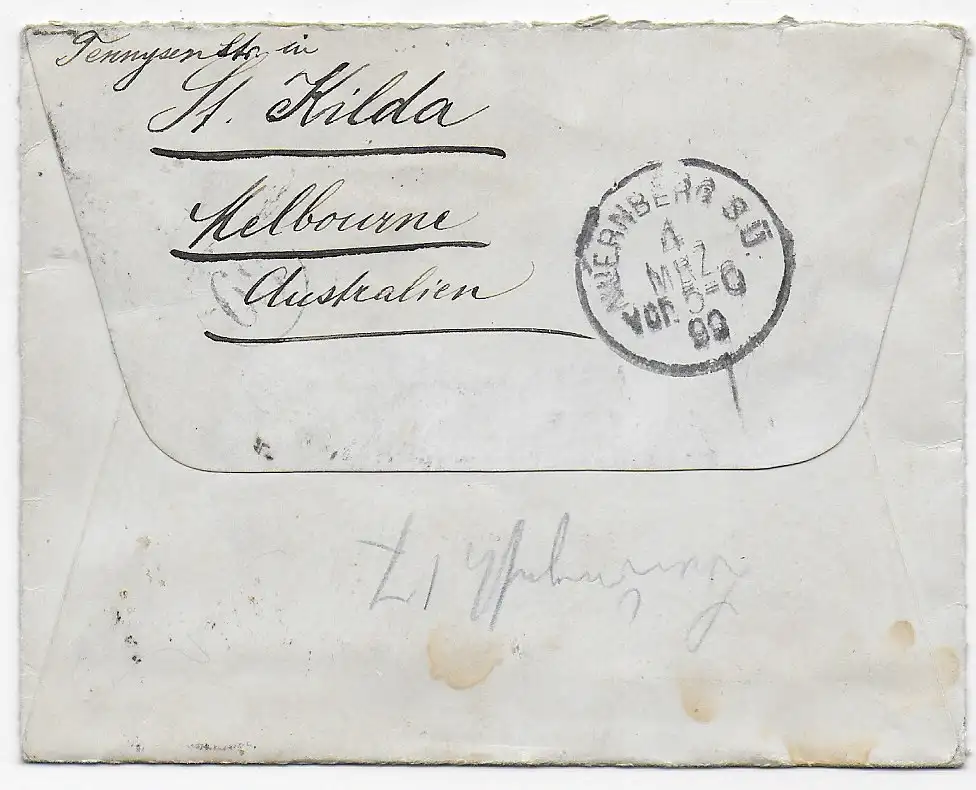 Tennysen Str. in
St. Kilda
Melbourne
Australien
NUERNBERG 8 Ü.
4
MRZ
Vor. 5-6
99